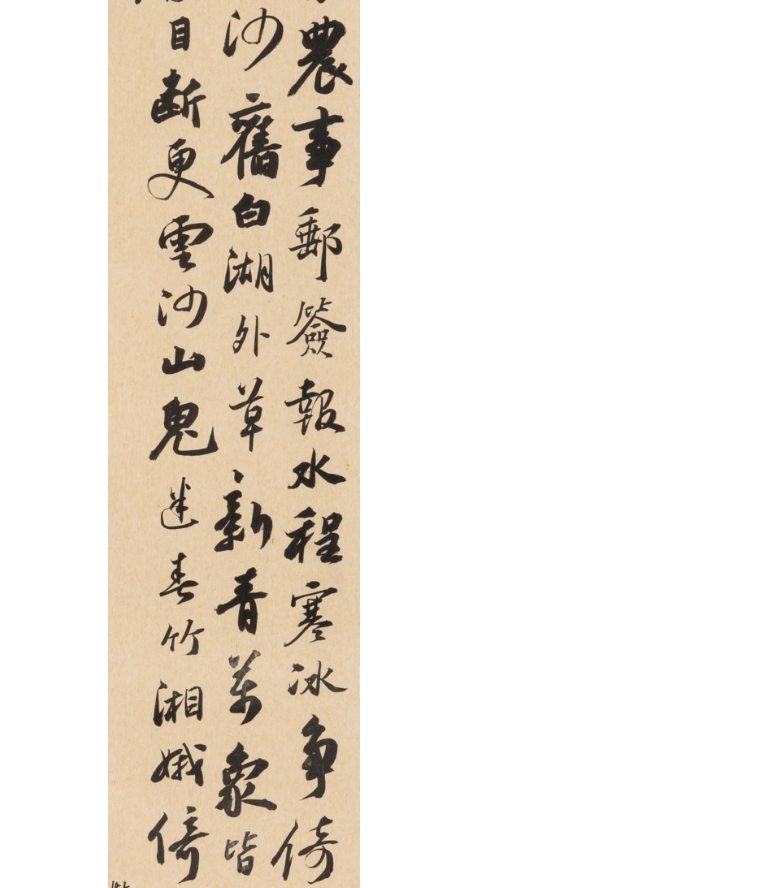 農事郵籤報水程寒冰爭倚
沙舊白湖外草新青萬象皆
目斷更雲沙山鬼迷春竹湘娥倚